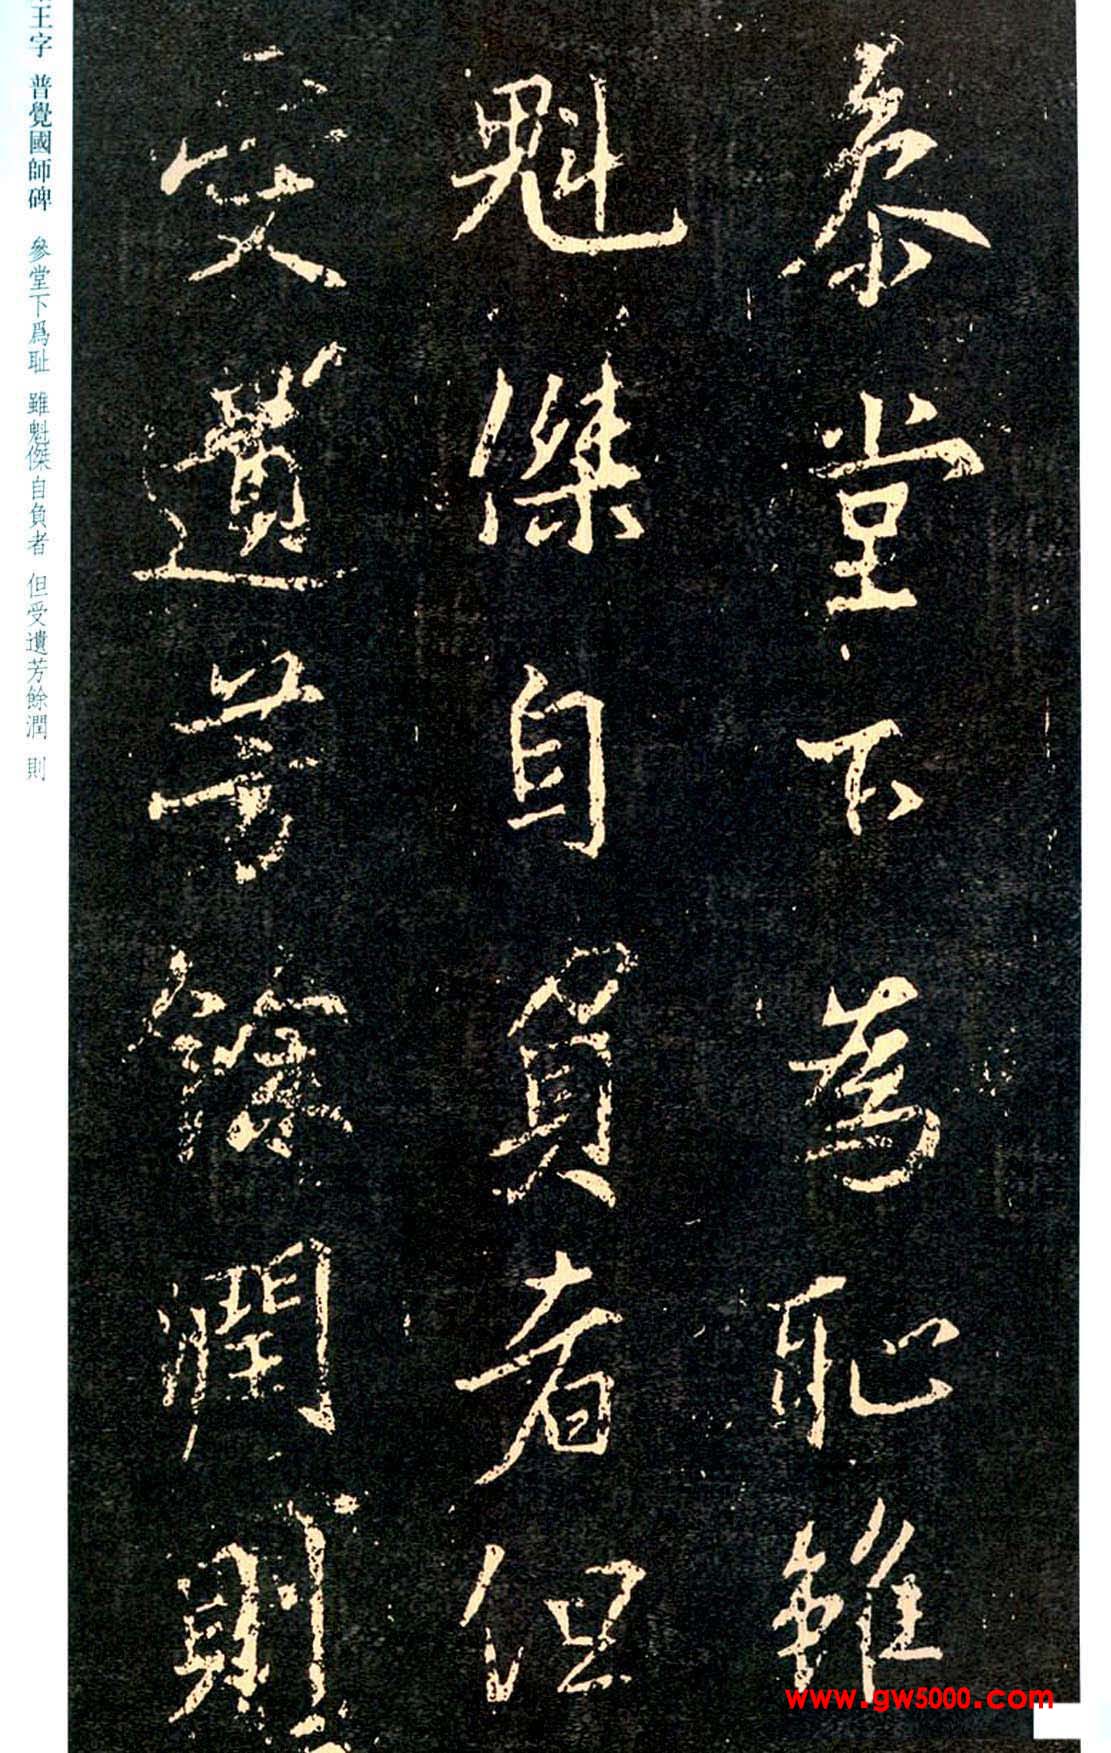 參堂下為耻雖
魁傑自負者但
受遺芳餘潤則
王字 普覺國師碑 參堂下爲耻 雖魁傑自負者 但受遺芳餘潤 則
www.gw5000.com